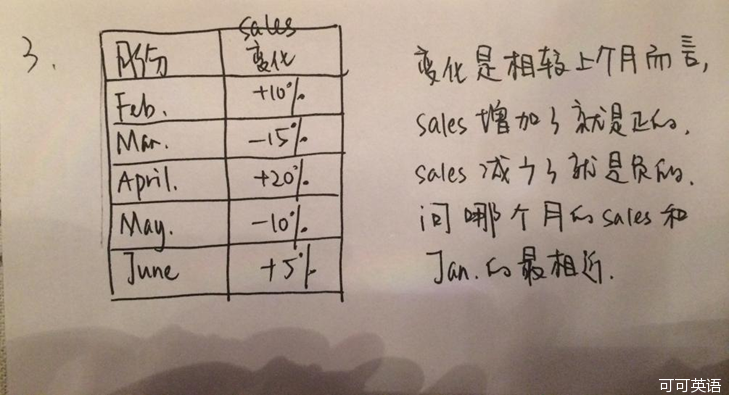 3.
月份 sales变化
Feb. +10%
Mar. -15%
April. +20%
May. -10%
June +5%
变化是相较上个月而言,
sales 增加了就是正的.
sales 减少了就是负的.
问哪个月的sales和
Jan.的最相近.
可可英语